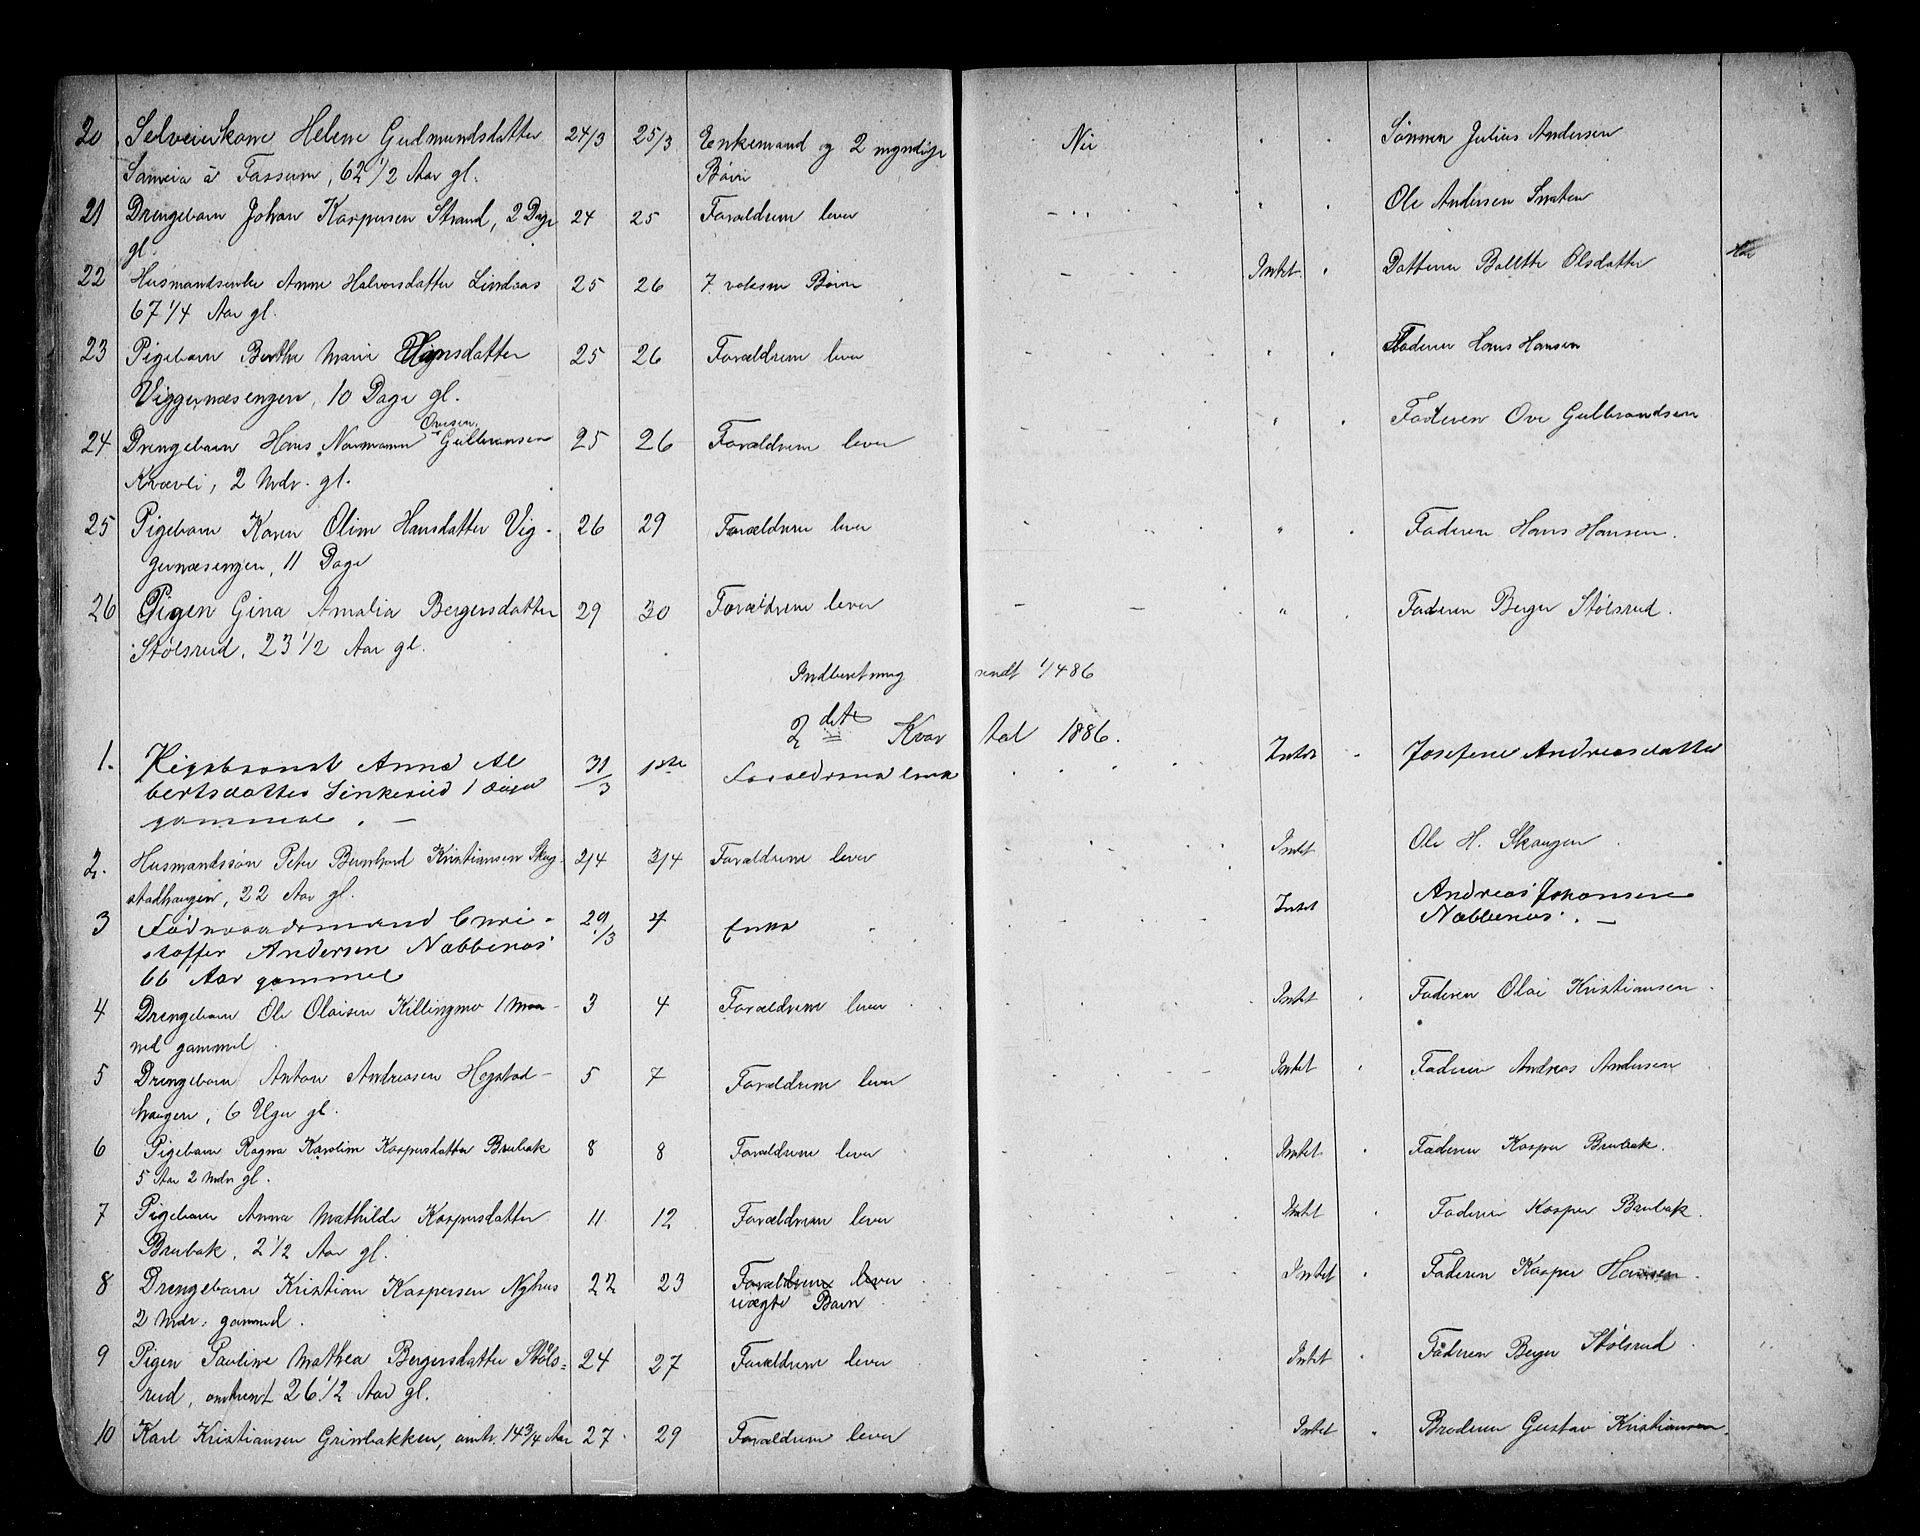 20 Selveierkone Helene Gudmundsdatter 24/3 25/3 Enkemand og 2 myndige Nei " " Sønnen Julius Andersen
Sameia à Fossum, 62 1/2 Aar gl. Børn
21 Drengebarn Johan Kaspersen Strand, 2 Dage 24 25 Forældrene lever " " Ole Andersen
gl.
22 Husmandsenke Anne Halvorsdatter Lindaas 25 26 7 voksne Børn Intet " Datteren Bolette Olsdatter
67 1/4 Aar gl.
23 Pigebarn Berthe Marie Hansdatter 25 26 Forældrene lever " " Faderen Hans Hansen
Viggernæsengen, 10 Dage gl.
Ovesen
24 Drengebarn Hans Normann Gulbransen 25 26 Forældrene lever " " Faderen Ove Gulbrandsen
Krævli, 2 Mdr. gl.
25 Pigebarn Karen Oline Hansdatter Vig- 26 29 Forældrene lever " " Faderen Hans Hansen.
gernæsengen, 11 Dage
26 Pigen Gina Amalia Bergersdatter 29 30 Forældrene lever " " Faderen Berger Stølsrud.
Stølsrud, 23 1/2 Aar gl.
Indberetning sendt 1/4 86
2det Kvartal 1886.
1. Anna Al 31/3 1ste Forældrene Intet " Josefine Andreasdatter
bertsdatter Linkerud 1
gammel. —
2. Husmandssøn Peter Bernhard Kristiansen Skog- 2/4 3/4 Forældrene lever Intet Ole H. Skaugen
stadhaugen, 22 Aar gl.
3 Fødraadsmand Chri- 29/3 4 Enke Intet Andreas Johansen
stoffer Andersen Næbbenæs Næbbenæs. —
66 Aar gammel
4 Drengebarn Ole Olaisen Killingmo 1 Maa- 3 4 Forældrene lever Intet " Faderen Olai Kristiansen.
ned gammel
5 Drengebarn Anton Andreasen Hogstad- 5 7 Forældrene lever Intet " Faderen Andreas Andersen
haugen, 6 Uger gl.
6 Pigebarn Ragna Karoline Kaspersdatter Brubak 8 8 Forældrene lever Intet " Faderen Kasper Brubak.
5 Aar 2 Mdr gl.
7 Pigebarn Anna Mathilde Kaspersdatter 11 12 Forældrene lever Intet " Faderen Kasper Brubak.
Brubak, 2 1/2 Aar gl.
8 Drengebarn Kristian Kaspersen Nyhus 22 23 Forældrene lever Intet " Faderen Kasper Hansen
2 Mdr. gammel. uægte Barn
9 Pigen Pauline Mathea Bergersdatter Støls= 24 27 Forældrene lever Intet " Faderen Berger Stølsrud
rud, omtrent 26 1/2 Aar gl.
10 Karl Kristiansen Grinbakken, omtr. 14 3/4 Aar 27 29 Forældrene lever Intet " Broderen Gustav Kristiansen.